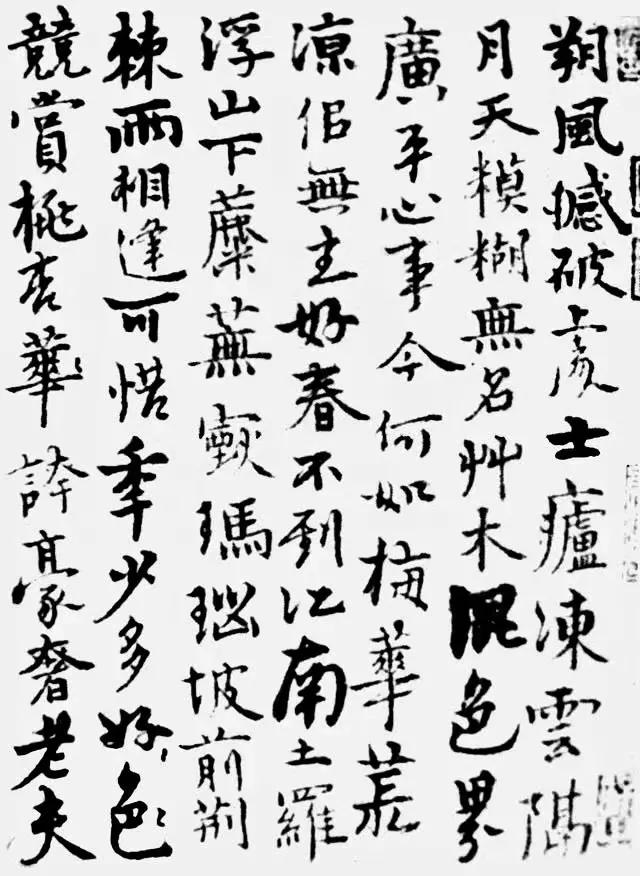 朔風撼破處士廬凍雲隔
月天糢糊無名艸木混色界
廣平心事今何如梅華荒
涼佀無主好春不到江南土羅
浮山下蘪蕪煙瑪瑙坡前荊
棘雨相逢可惜年少多好色
競賞桃杏華誇豪奢老夫